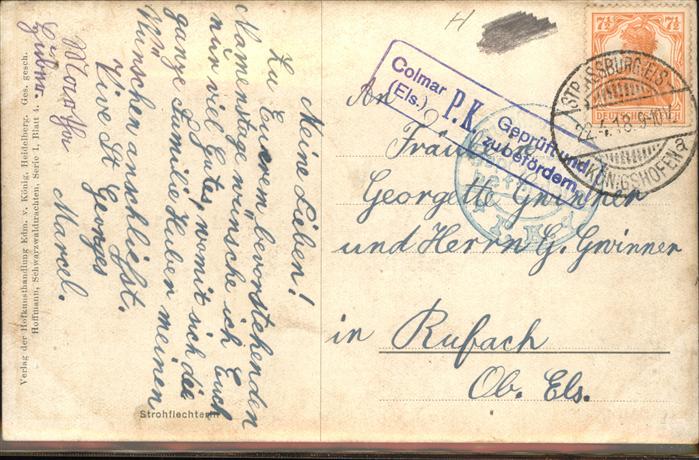 Meine Lieben!
Zu Eurem bevorstehenden
Namenstage wünsche ich Euch
nur viel Gutes, womit sich die
ganze Familie Huber meinen
Wünschen anschließt.
Vive St Georges
Marcel.
Martha
Verlag der Hofkunsthandlung Edm. v. König, Heidelberg. Ges. gesch.
Hoffmann, Schwarzwaldtrachten, Serie 1, Blatt 4.
Strohflechterin
H
7½ 7½
DEUTSCHES
STRASSBURG (ELS.)-
22.4.18. 9-10V.
KÖNIGSHOFEN a
Colmar
(Els.)
P.K.
Geprüft und
zu befördern
An
Fräulein
Georgette Gwinner
und Herrn G. Gwinner
in Rufach
Ob. Els.